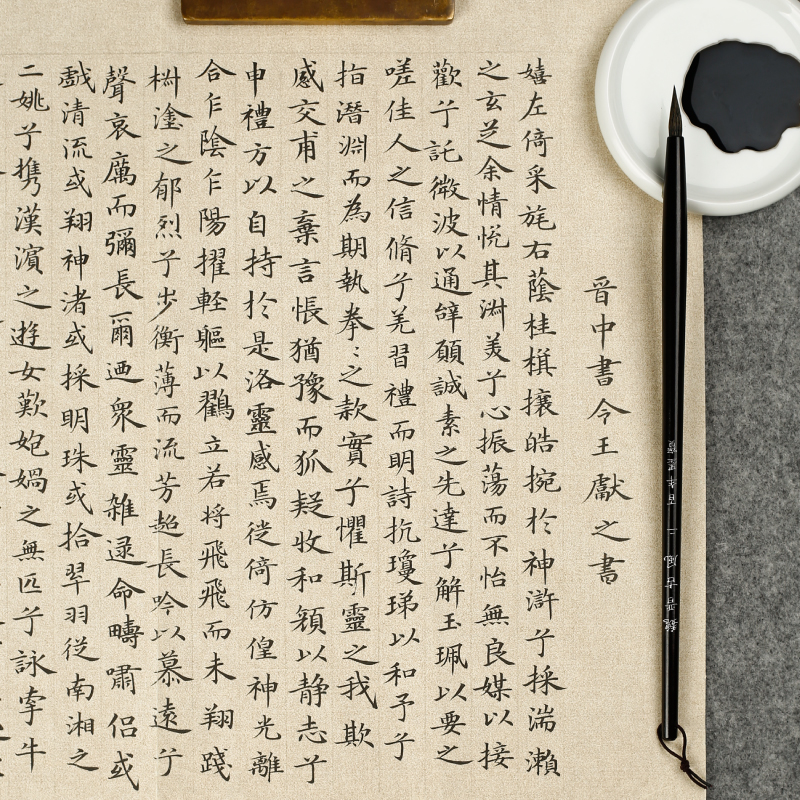 晉中書令王獻之書
嬉左倚采旄右蔭桂棋攘皓捥於神滸兮採湍瀨
之玄芝余情悅其淑美兮心振蕩而不怡無良媒以接
歡兮託微波以通辭願誠素之先達兮解玉珮以要之
嗟佳人之信脩兮羌習禮而明詩抗瓊珶以和予兮
指潛淵而為期執拳〻之款實兮懼斯靈之我欺
感交甫之棄言悵猶豫而狐疑收和顏以静志兮
申禮方以自持於是洛靈感焉徙倚仿偟神光離
合乍陰乍陽擢輕軀以鸛立若將飛飛而未翔踐
椒塗之郁烈兮步衡薄而流芳超長吟以慕遠兮
聲哀厲而彌長爾迺眾靈雜遝命疇嘯侶或
戲清流或翔神渚或採明珠或拾翠羽從南湘之
二姚兮攜漢濱之遊女歎匏媧之無匹兮詠牽牛